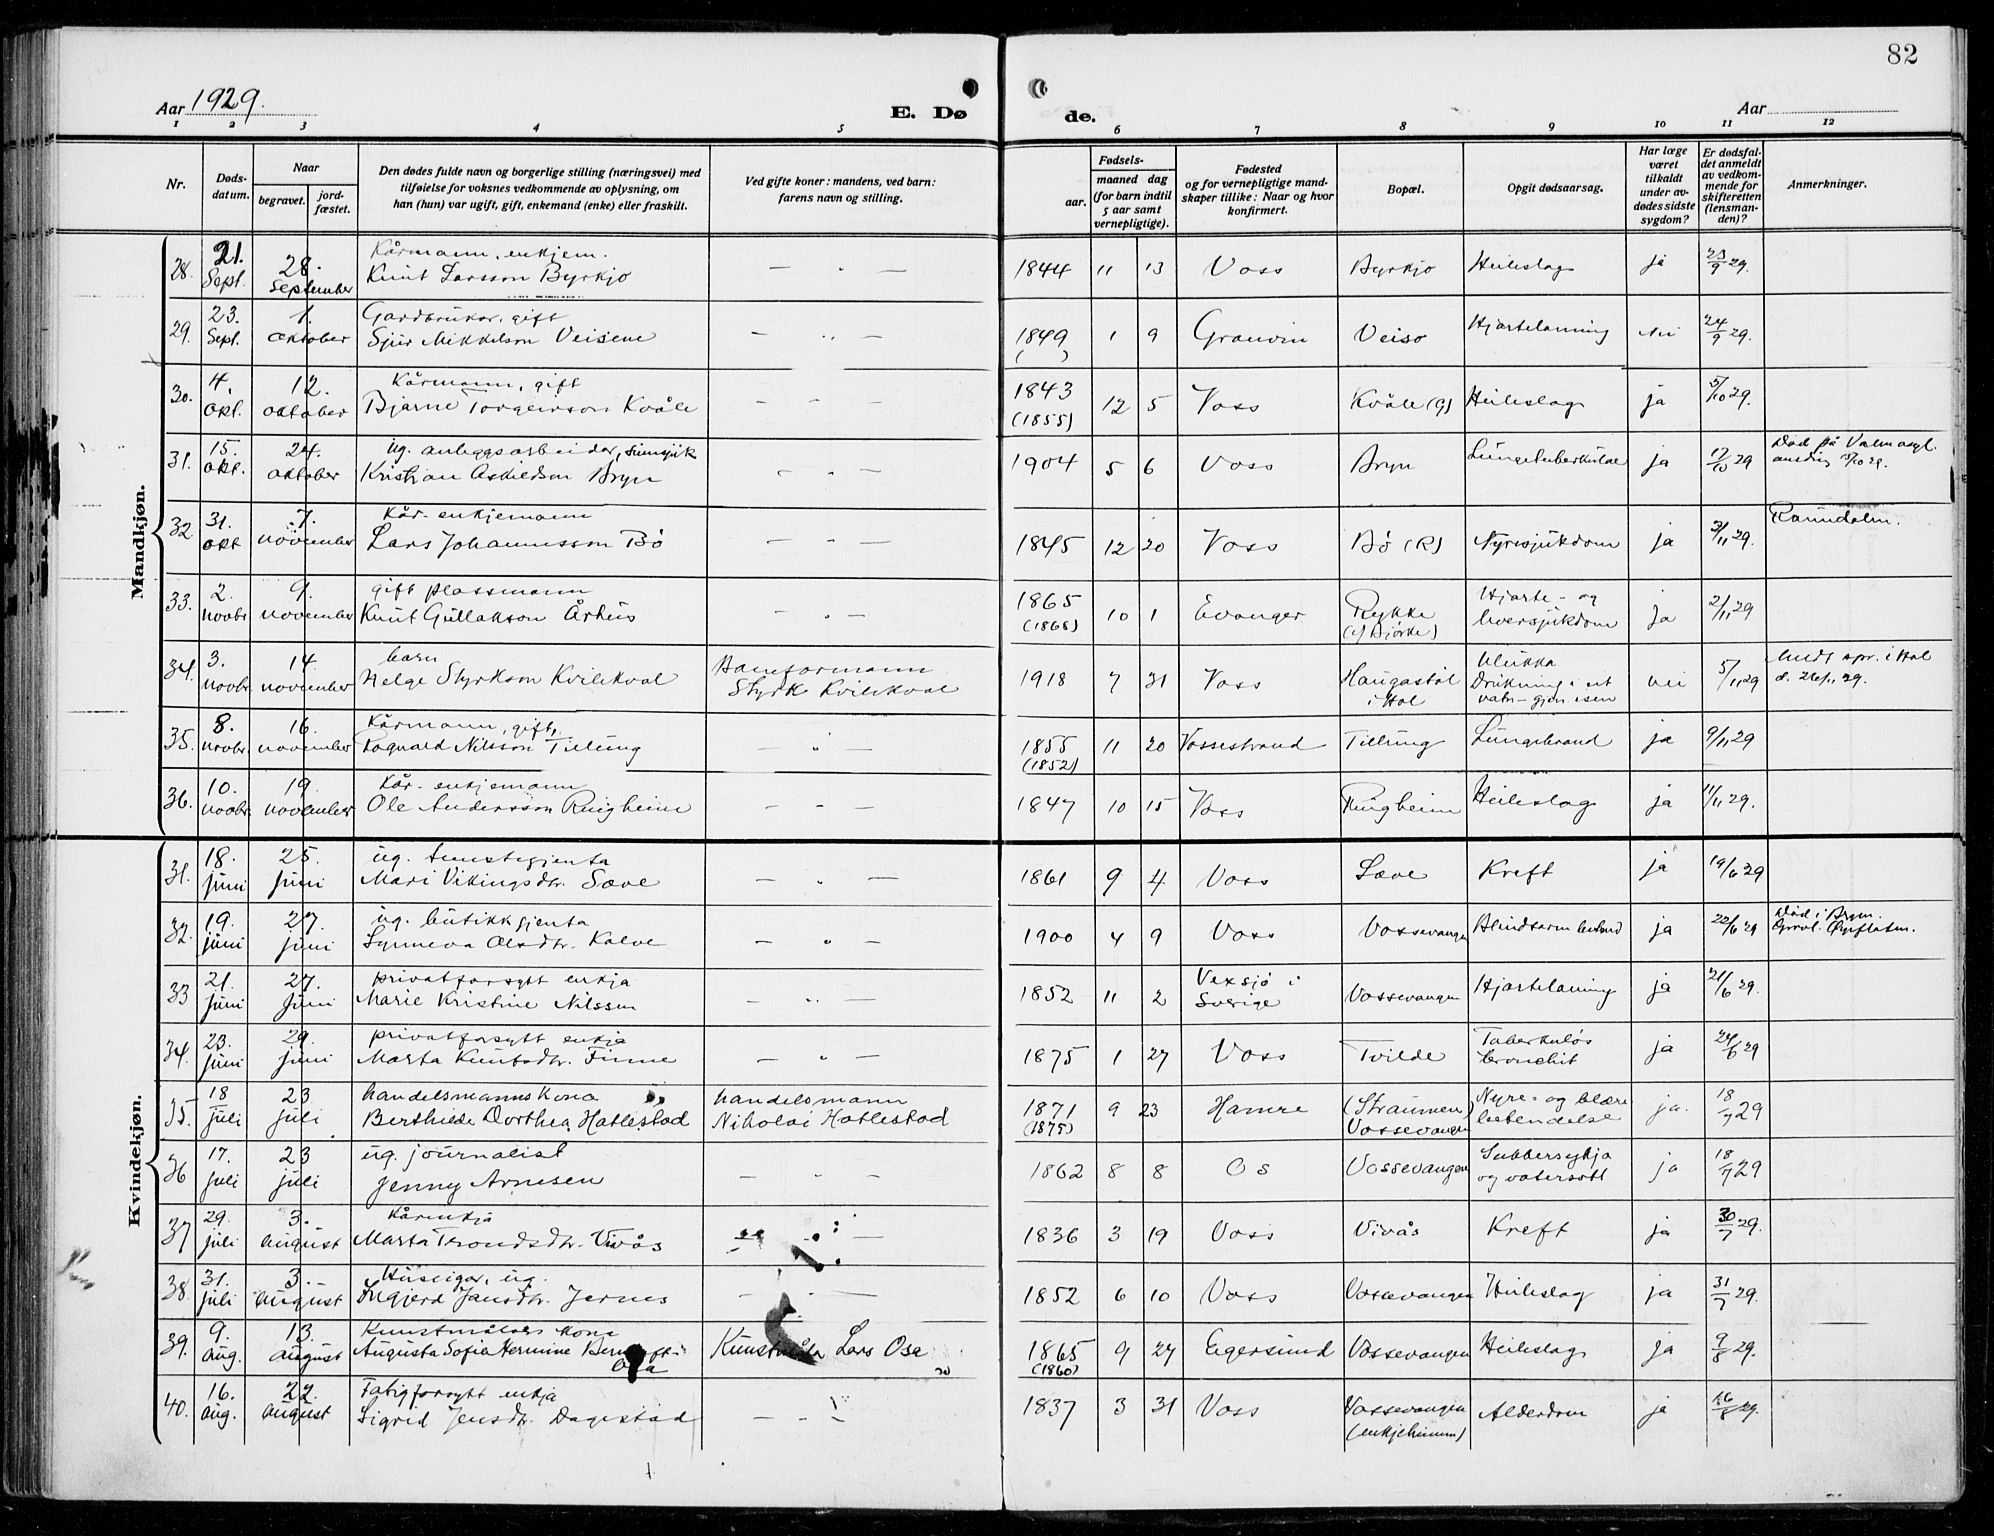 82
Aar 1929.
E. Dø
de.
Aar
1 2 3 4 5 6 7 8 9 10 11 12
Nr.
Døds-
datum.
Naar
begravet.
jord-
fæstet.
Den dødes fulde navn og borgerlige stilling (næringsvei) med
tilføielse for voksnes vedkommende av oplysning, om
han (hun) var ugift, gift, enkemand (enke) eller fraskilt.
Ved gifte koner: mandens, ved barn:
farens navn og stilling.
Fødsels-
aar.
maaned dag
(for barn indtil
5 aar samt
vernepligtige).
Fødested
og for vernepligtige mand-
skaper tillike: Naar og hvor
konfirmert.
Bopæl.
Opgit dødsaarsag.
Har læge
været
tilkaldt
under av-
dødes sidste
sygdom?
Er dødsfal-
det anmeldt
av vedkom-
mende for
skifteretten
(lensman-
den)?
Anmerkninger.
Mandkjøn.
28. 21. Sept. 28. September Kårmann, enkjem. Knut Larsson Byrkjo — " — 1844 11 13 Voss Byrkjo Heileslag ja 23/9 29.
29. 23. Sept. 1. oktober Gardbrukar, gift Sjur Mikkelson Veisene — " — 1849 ( ) 1 9 Granvin Veiso Hjartelamning nei 24/9 29.
30. 4. okt. 12. oktober Kårmann, gift Bjarne Torgeirson Kvåle - - - 1843 (1855) 12 5 Voss Kvåle (G) Heileslag ja 5/10 29.
31. 15. okt. 24. oktober ug. anleggsarbeidar, Kristian Askildson Bryn - - - 1904 5 6 Voss Bryn Lungetuberkulose ja 17/10 29 Død på
32 31. okt 7. november Kår-enkjemann Lars Johannesson Bö — - — 1845 12 20 Voss Bö (R) Nyresjukdom ja 3/11 29. Raundalen.
33. 2. novbr. 9. november gift plassmann Knut Gullakson Århus - " - 1865 (1868) 10 1 Evanger Rykke (Bjørke) Hjarte- og leversjukdom ja 2/11 29
34. 3. novbr. 14. november barn Helge Styrkson Kvilekval Baneformann Styrk Kvilekval 1918 7 31 Voss Haugastöl i Hol Ulukka Drukning i et vatn - gjen. isen nei 5/11 29 Meldt spr. i Hol d. 26/11 29.
35. 8. novbr. 16. november Kårmann, gift, Ragnald Nilsson Tillung — " — 1855 (1852) 11 20 Vossestrand Tillung Lungebrand ja 9/11 29
36. 10. novbr. 19. november Kår-enkjemann Ole Andersson Ringheim - - - 1847 10 15 Voss Ringheim Heileslag ja 11/11 29.
Kvindekjøn.
31. 18. juni 25. juni ug. tenestegjenta Mari Vikingsdtr. Sæve — " — 1861 9 4 Voss Sæve Kreft ja 19/6 29
32. 19. juni 27. juni ug. butikkgjenta Synneva Olsdtr. Kalve — " — 1900 4 9 Voss Vossevangen ja 22/6 29 Död i
33 21. juni 27. juni privatforsytt enkja Marie Kristine Nilssen - " - 1852 11 2 Vexsjø i Sverige Vossevangen Hjartelamning ja 21/6 29.
34. 23. juni 29. juni privatforsytt enkja Marta Knutsdtr. Finne — " — 1875 1 27 Voss Tvilde Tuberkuløs bronchit ja 24/6 29
35. 18 juli 23 juli handelsmannskona Berthilde Dorthea Hatlestad handelsmann Nikolai Hatlestad 1871 (1875) 9 23 Hamre (Straumen) Vossevangen Nyre- og blære betendelse ja. 18/7 29
36 17. juli 23 juli ug. journalist Jenny Arnesen - " - 1862 8 8 Os Vossevangen Sukkersykja og vatersott ja 18/7 29
37 29. juli 3. august Kårenkja Marta Trondsdtr. Vivås - - 1836 3 19 Voss Vivås Kreft ja 30/7 29.
38. 31. juli 3. august Huseigar, ug. Ingjerd Jensdtr. Jernes - - - 1852 6 10 Voss Vossevangen Heileslag ja 31/7 29.
39. 9. aug. 13. august Kunstmålars kona Augusta Sofia Hermine Osa Kunstmålar Lars Osa 1865 (1860) 9 27 Egersund Vossevangen Heileslag ja 9/8 29.
40. 16. aug. 22. august Fatigforsytt enkja Sigrid Jensdtr. Dagestad - - - 1837 3 31 Voss Vossevangen (enkjeheimen) Alderdom ja 16/8 29.